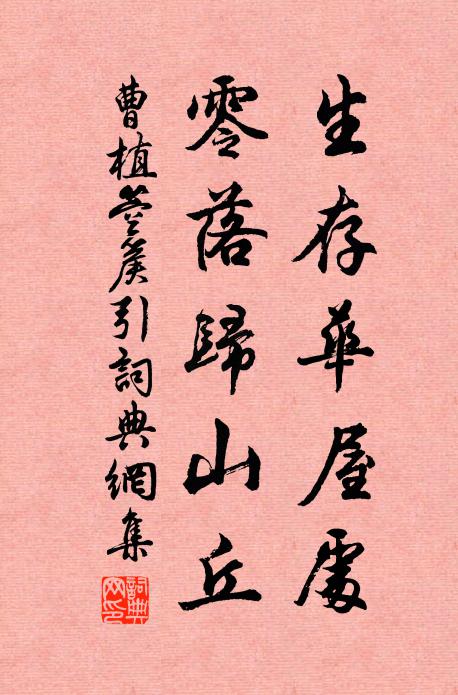 生存華屋處
零落歸山丘
曹植箜篌引詞典網集
詞典网印